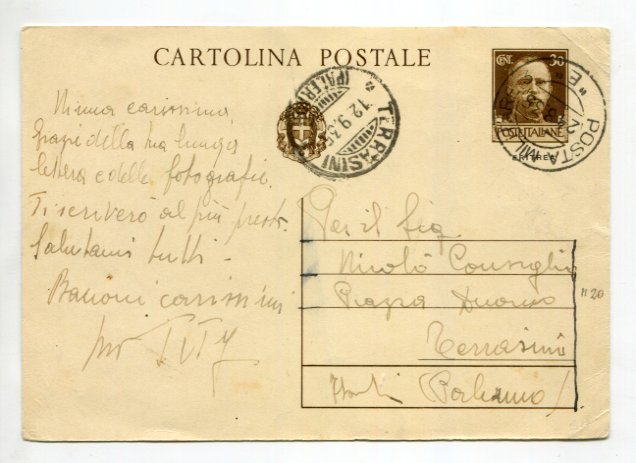 CARTOLINA POSTALE
CENT. 30
POSTE ITALIANE
ERITREA
TERRASINI
(PALER
12.9.35
POSTA MIL
"E"
carissima,
Grazie della tua lunga
lettera e delle fotografie.
Ti scriverò al più presto.
Salutami tutti -
Bacioni carissimi
TITY
Per il Sig.
Nicolò Consiglio
Piazza Duomo
n 20
Terrasini
Palermo